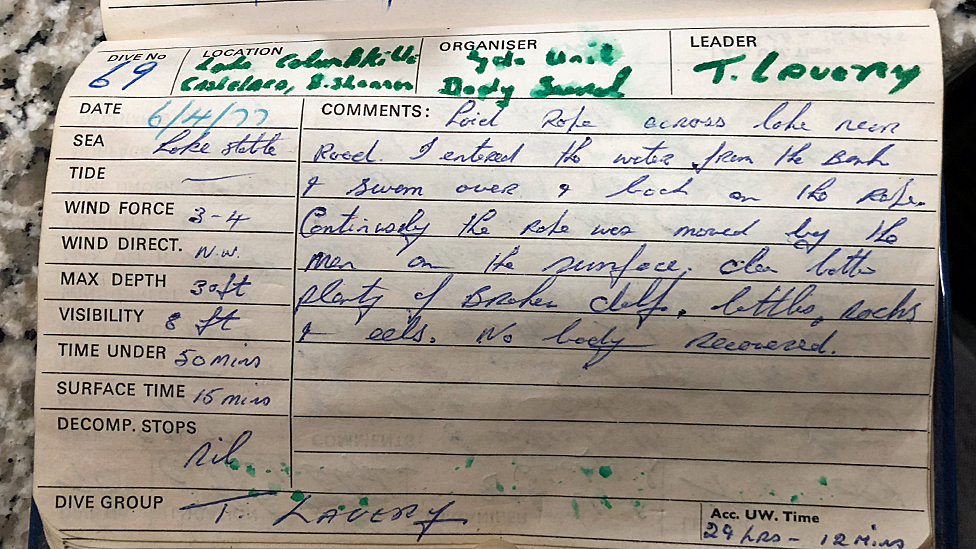 DIVE No 69
LOCATION Lake Columbkille
B. Shannon
ORGANISER Unit
Body Search
LEADER T. LAVERY
DATE 6/4/77
SEA Lake
TIDE —
WIND FORCE 3-4
WIND DIRECT. N.W.
MAX DEPTH 30ft
VISIBILITY 8 ft
TIME UNDER 50 mins
SURFACE TIME 15 mins
DECOMP. STOPS
nil
COMMENTS: Laid Rope across lake near
Road. I entered the water from the Bank
& swam over & back on the rope.
Continously the rope was moved by the
men on the surface. clear bottom
plenty of Broken delf, bottles, rocks
& eels. No body recovered.
DIVE GROUP T LAVERY
Acc. UW. Time
29 HRS - 12 MINS